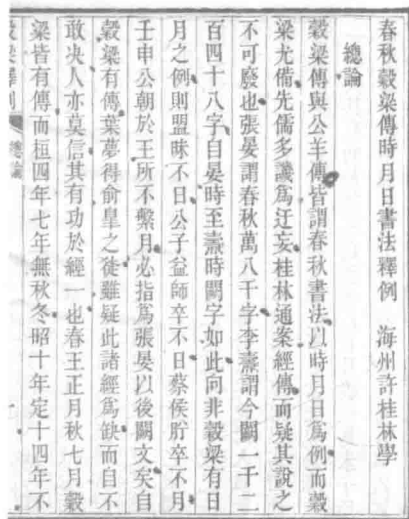 春秋穀梁傳時月日書法釋例　海州許桂林學
總論
穀梁傳與公羊傳皆謂春秋書法以時月日爲例而穀
梁尤備先儒多譏爲迂妄桂林通案經傳而疑其說之
不可廢也張晏謂春秋萬八千字李燾謂今闕一千二
百四十八字自晏時至燾時闕字如此向非穀梁有日
月之例則盟昧不日公子益師卒不日蔡侯肸卒不月
壬申公朝於王所不繫月必指爲張晏以後闕文矣自
穀梁有傳葉夢得俞皐之徒雖疑此諸經爲缺而自不
敢决人亦莫信其有功於經一也春王正月秋七月穀
梁皆有傳而桓四年七年無秋冬昭十年定十四年不
穀梁釋例　總論